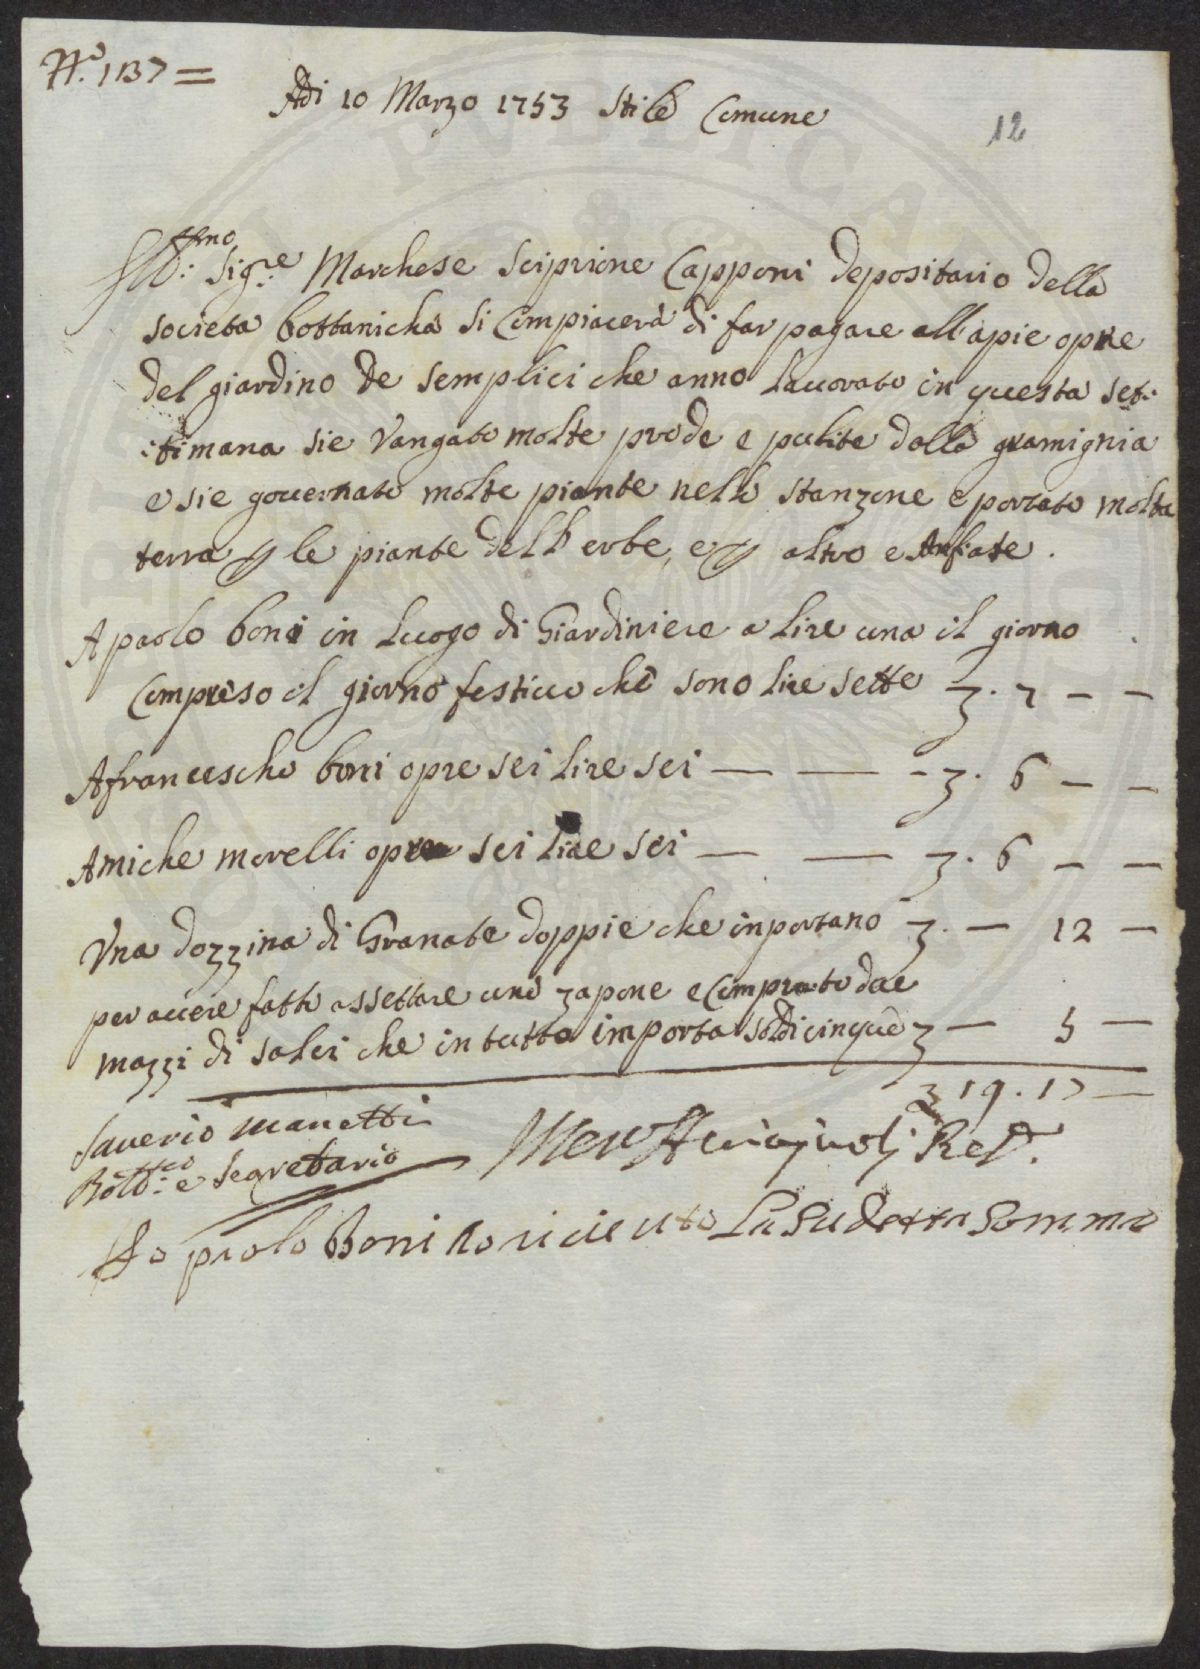 N.o 1137 =
Adi 10 Marzo 1753 stile Comune
12
Ill.mo Sig.re Marchese Sciprione Capponi depositario della
societa bottanicha si Compiacerà di far pagare all'apie opre
del giardino de semplici che anno Lauorato in questa set:
:timana sie Vangato molte prode e pulite dalla gramignia
e sie gouernato molte piante nello stanzone e portato molta
terra p le piante dell erbe, e p altro e Anfiate.
A paolo boni in Luogo di Giardiniere a Lire una il giorno
Compreso il giorno festiuo che sono lire sette 3. 7 — —
Afrancescho boni opre sei lire sei — — - 3. 6 — —
Amiche morelli opre sei lire sei — — 3. 6 — —
Vna dozzina di Granate doppie che inportano 3. — 12 —
per auere fatto assettare uno zapone e Comprato due
mazzi di salci che in tutto importa soldi cinque 3 — 5 —
3 19. 17 —
Saverio Manetti
Bott.co e Segretario
Ref.
Io paolo Boni ho riceuto La Sudetta Somma